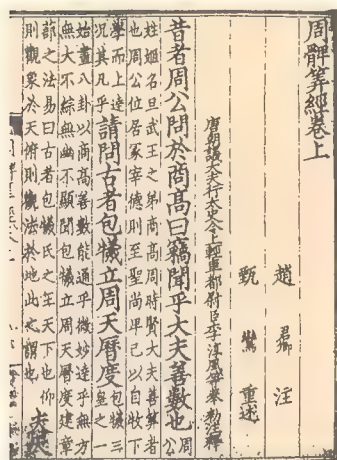 周髀算經卷上
趙君卿注
甄鸞重述
唐朝議大夫行太史令上輕車都尉臣李淳風等奉勑注釋
昔者周公問於商高曰竊聞乎大夫善數也周公
姓姬名旦武王之弟商高周時賢大夫善算者
也周公位居冢宰德則至聖尚卑己以自牧下
學而上達
況其凡乎
請問古者包犧立周天曆度
包犧三
皇之一
始畫八卦以商高善數能通乎微妙達乎無方
無大不綜無幽不顯聞包犧立周天曆度建章
蔀之法易曰古者包犧氏之王天下也仰
則觀象於天俯則觀法於地此之謂也
夫天